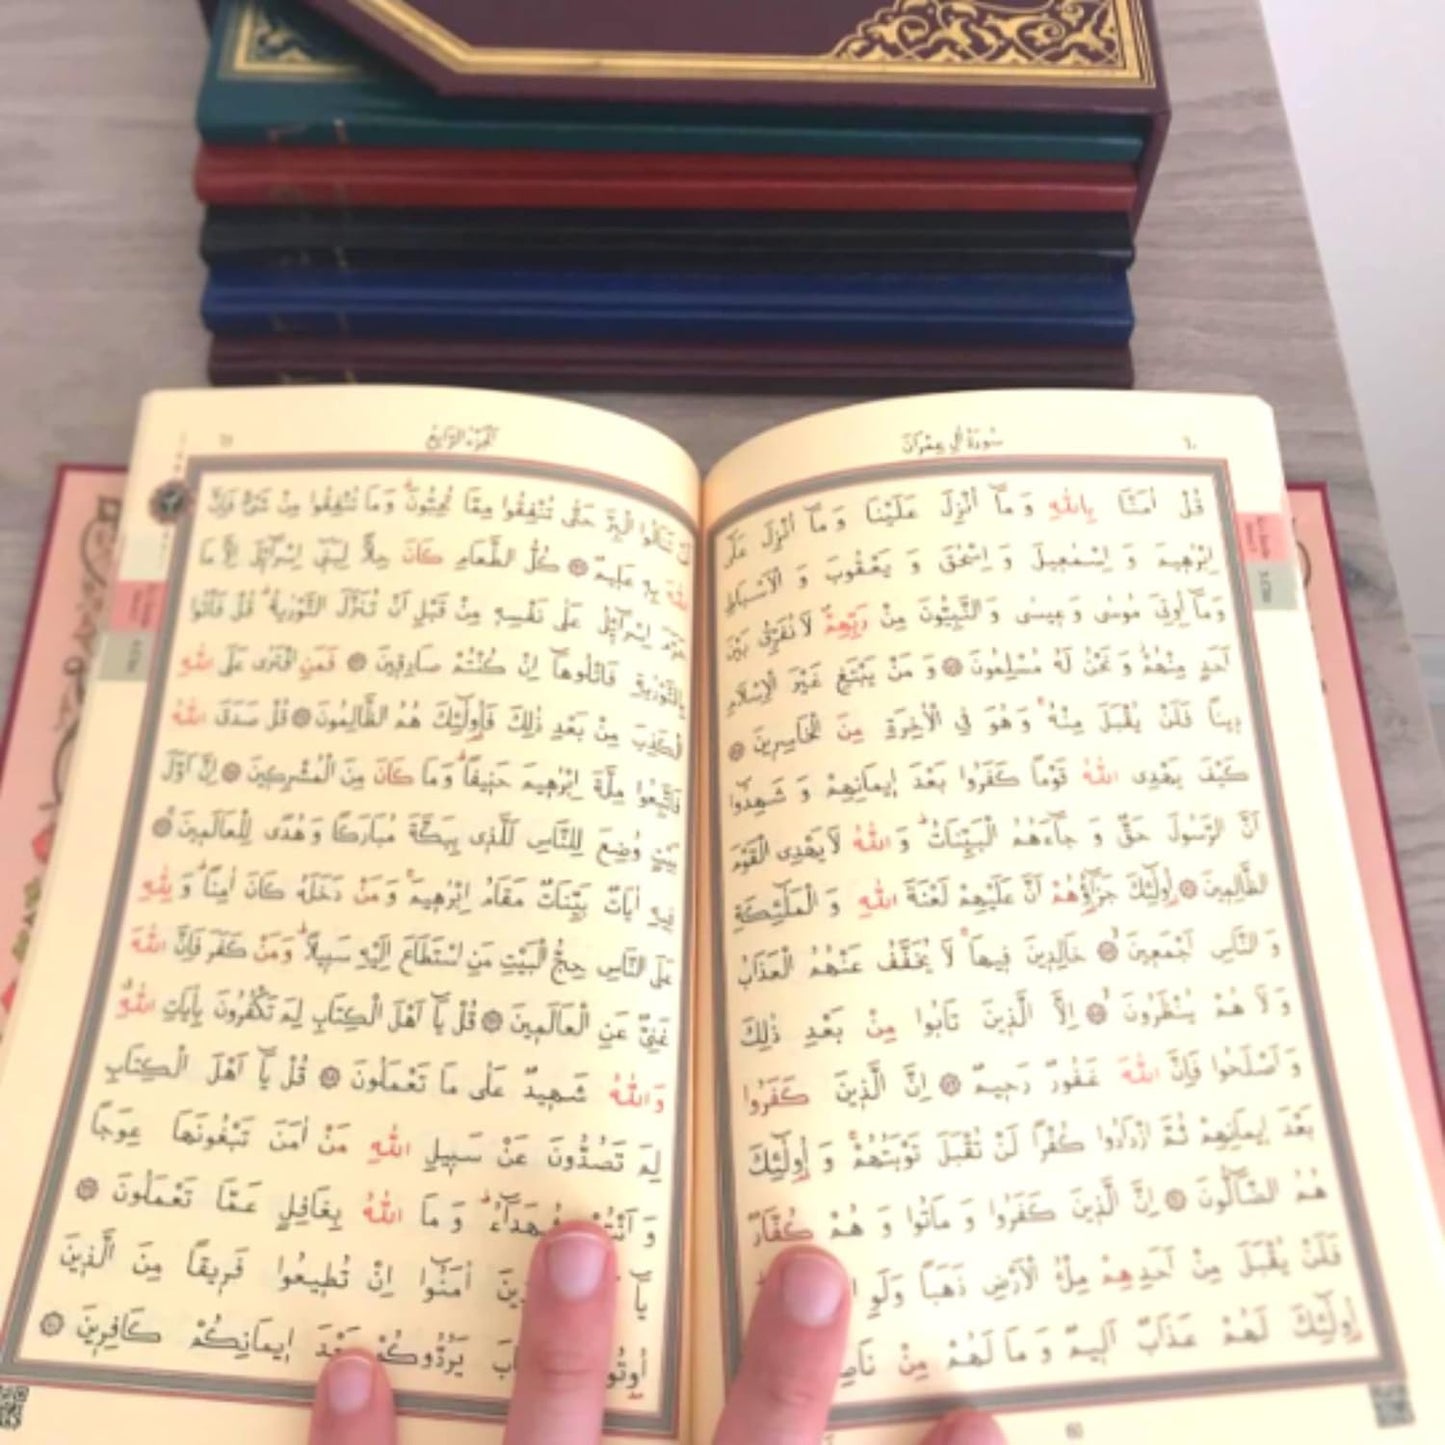 سُورَةُ اٰلِ عِمْرٰنَ
٦٠
قُلْ اٰمَنَّا بِاللّٰهِ وَ مَٓا اُنْزِلَ عَلَيْنَا وَ مَٓا اُنْزِلَ عَلٰٓى
اِبْرٰهٖيمَ وَ اِسْمٰعٖيلَ وَ اِسْحٰقَ وَ يَعْقُوبَ وَ الْاَسْبَاطِ
وَمَٓا اُو۫تِىَ مُوسٰى وَ عٖيسٰى وَ النَّبِيُّونَ مِنْ رَبِّهِمْ لَا نُفَرِّقُ بَيْنَ
اَحَدٍ مِنْهُمْ وَ نَحْنُ لَهُ مُسْلِمُونَ وَ مَنْ يَبْتَغِ غَيْرَ الْاِسْلَامِ
دٖيناً فَلَنْ يُقْبَلَ مِنْهُ وَ هُوَ فِى الْاٰخِرَةِ مِنَ الْخَاسِرٖينَ
كَيْفَ يَهْدِى اللّٰهُ قَوْمًا كَفَرُوا بَعْدَ اٖيمَانِهِمْ وَ شَهِدُٓوا
اَنَّ الرَّسُولَ حَقٌّ وَ جَٓاءَهُمُ الْبَيِّنَاتُ وَ اللّٰهُ لَا يَهْدِى الْقَوْمَ
الظَّالِمٖينَ اُو۬لٰٓئِكَ جَزَٓاؤُ۬هُمْ اَنَّ عَلَيْهِمْ لَعْنَةَ اللّٰهِ وَ الْمَلٰٓئِكَةِ
وَ النَّاسِ اَجْمَعٖينَ خَالِدٖينَ فٖيهَا لَا يُخَفَّفُ عَنْهُمُ الْعَذَابُ
وَ لَا هُمْ يُنْظَرُونَ اِلَّا الَّذٖينَ تَابُوا مِنْ بَعْدِ ذٰلِكَ
وَ اَصْلَحُوا فَاِنَّ اللّٰهَ غَفُورٌ رَحٖيمٌ اِنَّ الَّذٖينَ كَفَرُوا
بَعْدَ اٖيمَانِهِمْ ثُمَّ ازْدَادُوا كُفْرًا لَنْ تُقْبَلَ تَوْبَتُهُمْ وَ اُو۬لٰٓئِكَ
هُمُ الضَّٓالُّونَ اِنَّ الَّذٖينَ كَفَرُوا وَ مَاتُوا وَ هُمْ كُفَّارٌ
فَلَنْ يُقْبَلَ مِنْ اَحَدِهِمْ مِلْءُ الْاَرْضِ ذَهَبًا وَلَوِ
اُو۬لٰٓئِكَ لَهُمْ عَذَابٌ اَلٖيمٌ وَ مَا لَهُمْ مِنْ
60
اَلْجُزْءُ الرَّابِعُ
لَنْ تَنَالُوا الْبِرَّ حَتّٰى تُنْفِقُوا مِمَّا تُحِبُّونَ وَ مَا تُنْفِقُوا مِنْ شَىْءٍ فَاِنَّ
اللّٰهَ بِهٖ عَلٖيمٌ كُلُّ الطَّعَامِ كَانَ حِلًّا لِبَنٖٓى اِسْرَٓائٖلَ اِلَّا مَا
حَرَّمَ اِسْرَٓائٖلُ عَلٰى نَفْسِهٖ مِنْ قَبْلِ اَنْ تُنَزَّلَ التَّوْرٰيةُ قُلْ فَاْتُوا
بِالتَّوْرٰيةِ فَاتْلُوهَٓا اِنْ كُنْتُمْ صَادِقٖينَ فَمَنِ افْتَرٰى عَلَى اللّٰهِ
الْكَذِبَ مِنْ بَعْدِ ذٰلِكَ فَاُو۬لٰٓئِكَ هُمُ الظَّالِمُونَ قُلْ صَدَقَ اللّٰهُ
فَاتَّبِعُوا مِلَّةَ اِبْرٰهٖيمَ حَنٖيفًا وَ مَا كَانَ مِنَ الْمُشْرِكٖينَ اِنَّ اَوَّلَ
بَيْتٍ وُضِعَ لِلنَّاسِ لَلَّذٖى بِبَكَّةَ مُبَارَكًا وَ هُدًى لِلْعَالَمٖينَ
فٖيهِ اٰيَاتٌ بَيِّنَاتٌ مَقَامُ اِبْرٰهٖيمَ وَ مَنْ دَخَلَهُ كَانَ اٰمِنًا وَ لِلّٰهِ
عَلَى النَّاسِ حِجُّ الْبَيْتِ مَنِ اسْتَطَاعَ اِلَيْهِ سَبٖيلًا وَمَنْ كَفَرَ فَاِنَّ اللّٰهَ
غَنِىٌّ عَنِ الْعَالَمٖينَ قُلْ يَٓا اَهْلَ الْكِتَابِ لِمَ تَكْفُرُونَ بِاٰيَاتِ اللّٰهِ
وَ اللّٰهُ شَهٖيدٌ عَلٰى مَا تَعْمَلُونَ قُلْ يَٓا اَهْلَ الْكِتَابِ
لِمَ تَصُدُّونَ عَنْ سَبٖيلِ اللّٰهِ مَنْ اٰمَنَ تَبْغُونَهَا عِوَجًا
وَ اَنْتُمْ شُهَدَٓاءُ وَ مَا اللّٰهُ بِغَافِلٍ عَمَّا تَعْمَلُونَ
يَٓا اٰمَنُٓوا اِنْ تُطٖيعُوا فَرٖيقًا مِنَ الَّذٖينَ
يَرُدُّوكُمْ بَعْدَ اٖيمَانِكُمْ كَافِرٖينَ